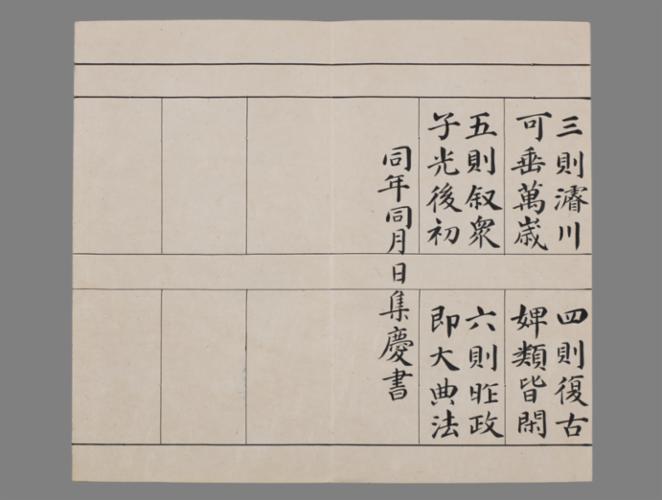 三則濬川
可垂萬歳
四則復古
婢類皆閑
五則叙衆
子光後初
六則昨政
即大典法
同年同月日集慶書